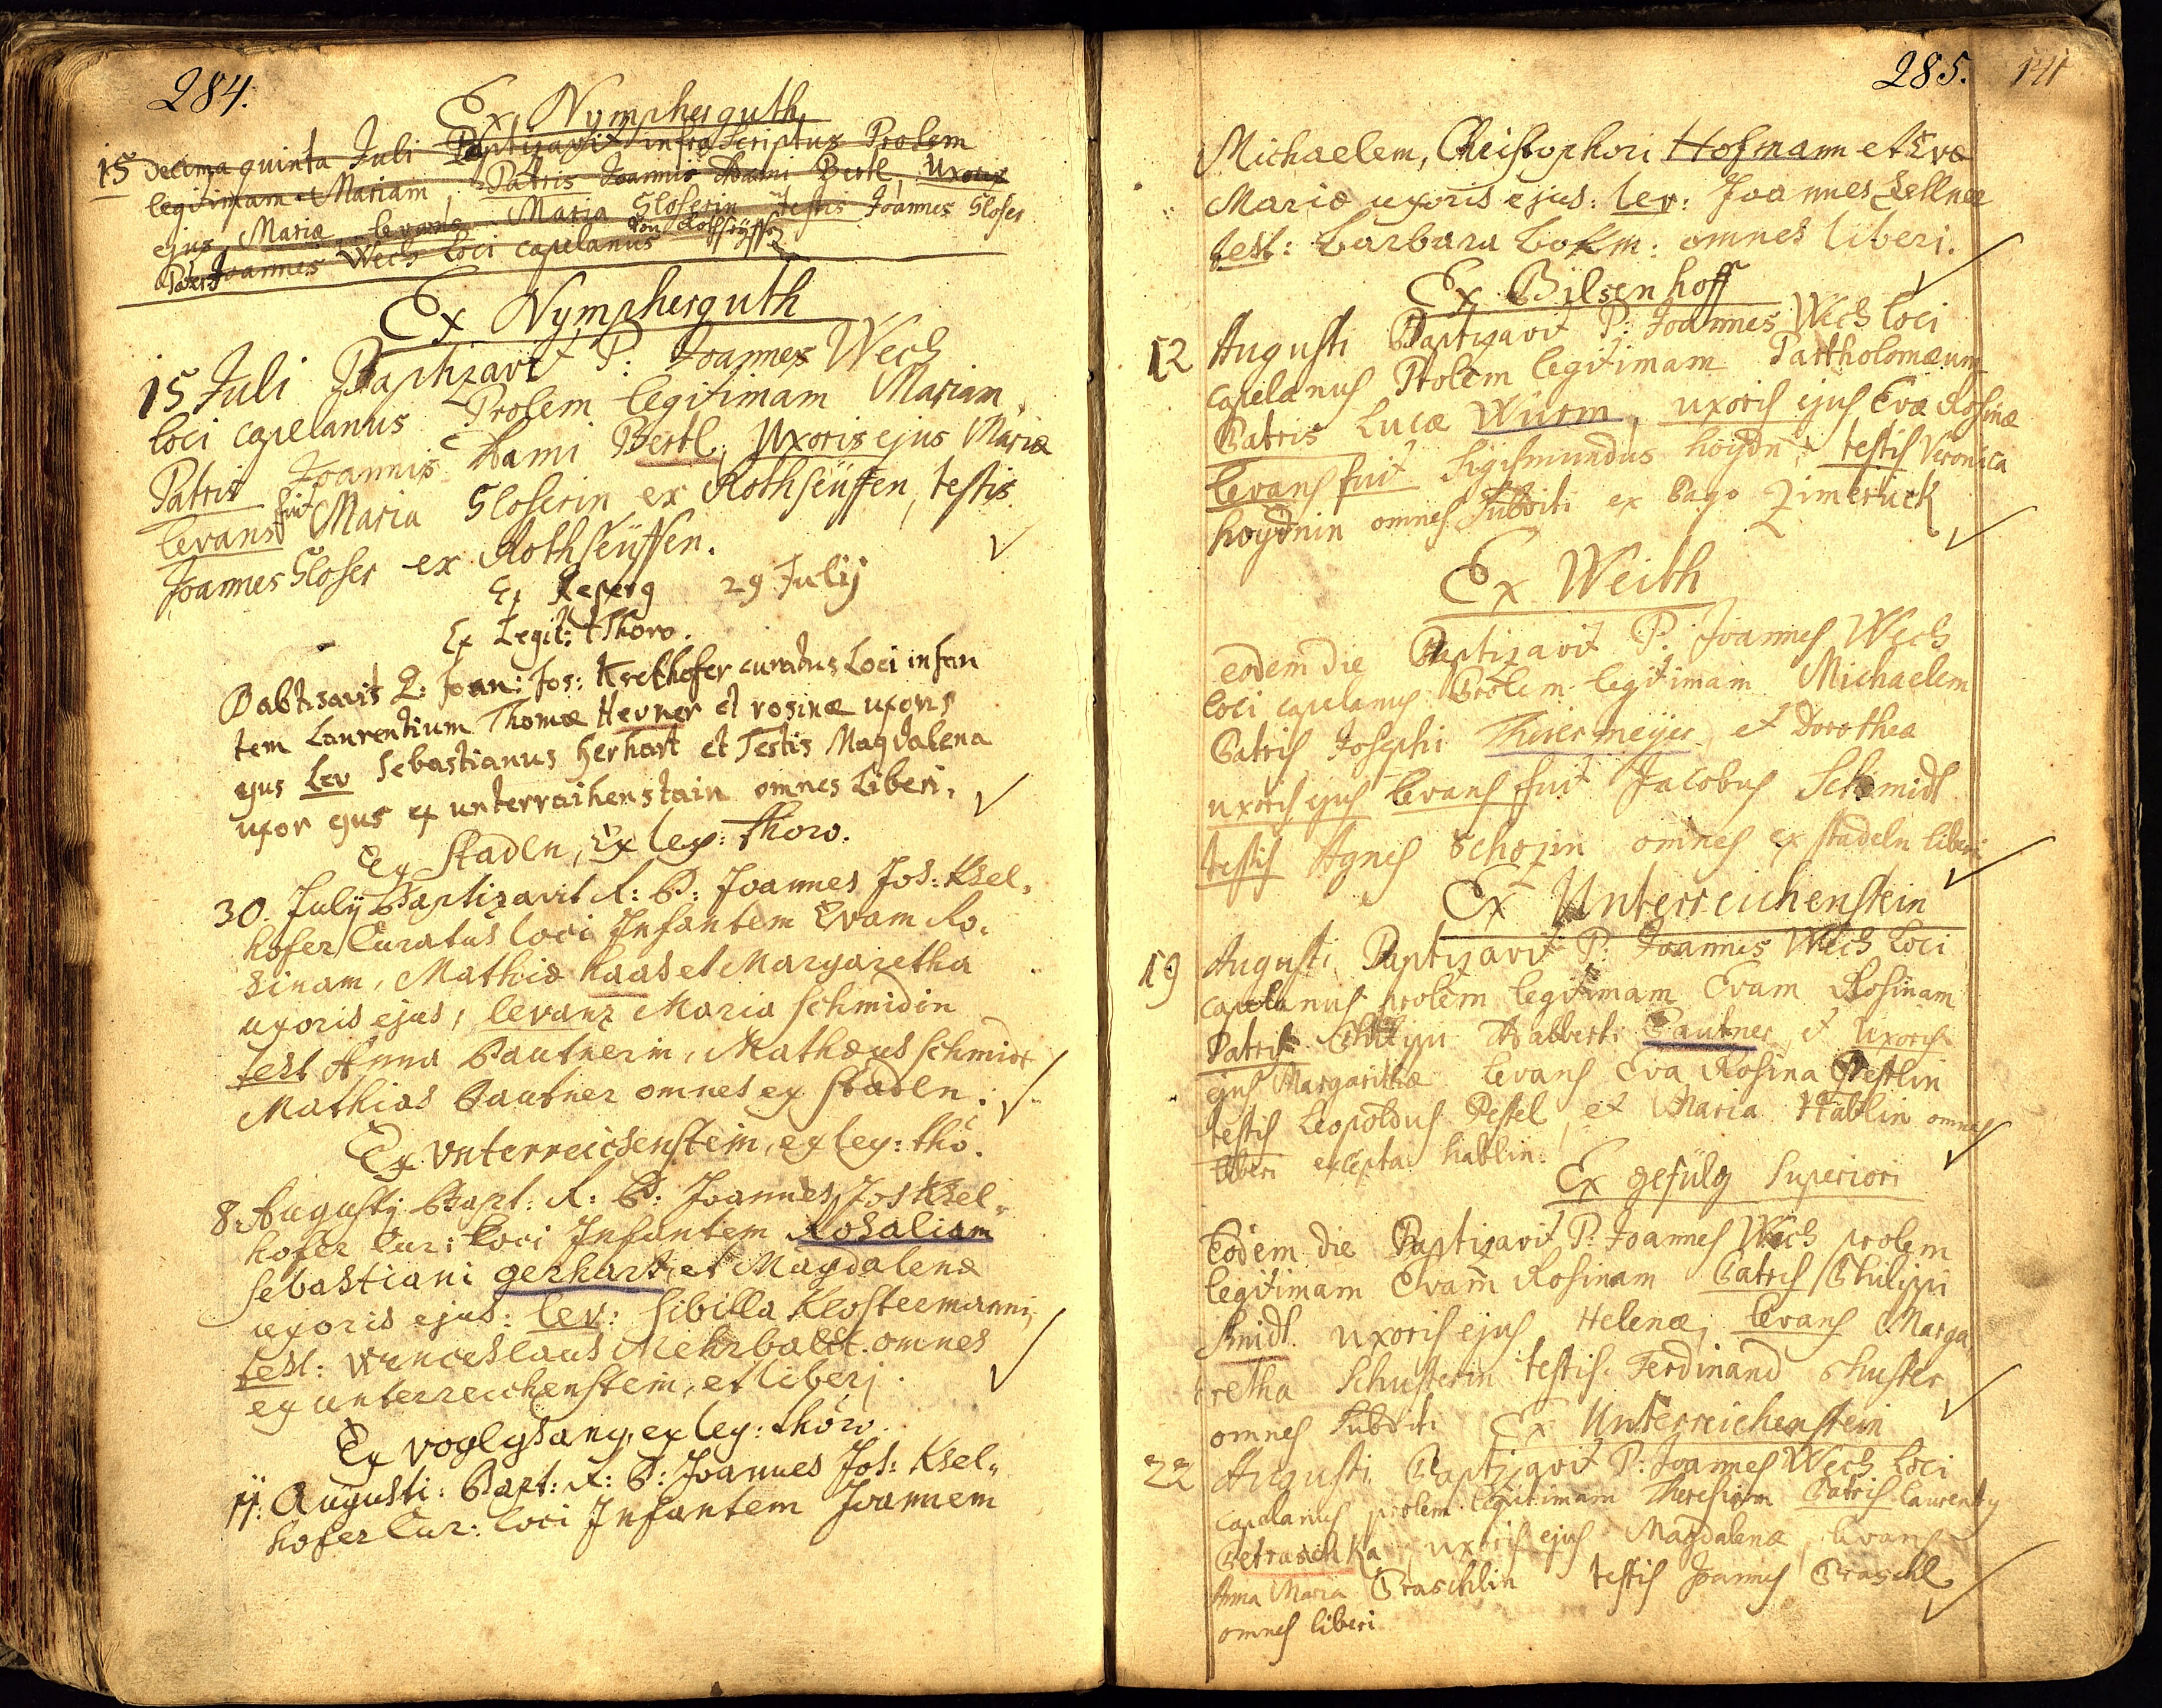 284.
Ex Nympherguth
15 Decima quinta Juli Baptizavit infra Scriptus Prolem
legitimam Mariam, Patris Joannis Adami Bertl, Uxoris
ejus Mariæ levans Maria Gloserin Testis Joannes Gloser
von Rothseÿffen
Pater Joannes Wech loci capelanus
Ex Nympherguth
15 Juli Baptizavit P: Joannes Wech
loci capelanus Prolem legitimam Mariam
Patris Joannis Adami Bertl, Uxoris ejus Mariæ
levans fuit Maria Gloserin ex Rothseüffen, testis
Joannes Gloser ex Rothseüffen.
Ex 29 Julij
Ex Legit: Thoro.
Babtisavit Joan: Jos: curatus Loci infan
tem Laurentium Thomæ Hevner et rosinæ uxoris
ejus Lev Sebastianus Gerhart et Testis Magdalena
uxor ejus ex unterraihenstain omnes Liberi,
Ex Stadln, Ex leg: Thoro.
30. Julij Baptizavit R: P: Joannes Jos: Ksel,
hofer Curatus loci Infantem Evam Ro,
sinam, Mathiæ haas et Margaretha
uxoris ejus, levans Maria schmidin
test Anna Pautnerin, Mathæus schmidt
Mathias Pautner omnes ex stadln.
Ex Unterreichenstein, ex leg: tho.
8. Augusty Bapt: R: P: Joannes Jos Ksel,
hofer Cur: loci Infantem Rosaliam
sebastiani gerhart et Magdalenæ
uxoris ejus: lev: sibilla Klostermanni,
test: Wenceslaus Mehrbaldt omnes
ex unterreichenstein, et liberj.
Ex voglgsang, ex leg: thoro.
11. Augusti: Bapt: R: P: Joannes Jos: Ksel,
hofer Cur: loci Infantem Joannem
285. 141
Michaelem, Christophori Hofmann et Evæ
Mariæ uxoris ejus: lev: Joannes Zellner
test: barbara bohm: omnes liberi.
Ex Bilsenhoff
12 Augusti Baptizavit P: Joannes Wech loci
capelanus Prolem legitimam Partholomæum
Patris Lucæ Würm, uxoris ejus Evæ Rosinæ
levans fuit Sigismundus hoydn, testis Veronica
hoydnin omnes Subditi ex Pago Zimerück
Ex Weith
eodem die Baptizavit P: Joannes Wech
loci capelanus Prolem legitimam Michaelem
Patris Josephi Thiermeyer et Dorothea
uxoris ejus levans fuit Jacobus Schmidt
testis Agnes Schozin omnes ex stadeln liberi
Ex Unterreichenstein
19 Augusti Baptizavit P: Joannes Wech Loci
capelanus prolem legitimam Evam Rosinam
Patris Adalberti Pautner, et Uxoris
ejus Margarithæ levans Eva Rosina Pestlin
testis Leopoldus Pestel, et Maria Hablin omnes
liberi excepta hablin.
Ex gefülg Superiori
Eodem die Baptizavit P: Joannes Wech prolem
legitimam Evam Rosinam Patris Philippi
Smidt uxoris ejus Helenæ, levans Marga
retha Schusterin testis Ferdinand Schuster
omnes Subditi Ex Unterreichenstein
22 Augusti Baptizavit P: Joannes Wech Loci
capelanus prolem legitimam Theresiam Patris laurenty
Petraschka, uxoris ejus Magdalenæ, levans
Anna Maria Praschlin testis Joannes Praschl
omnes liberi